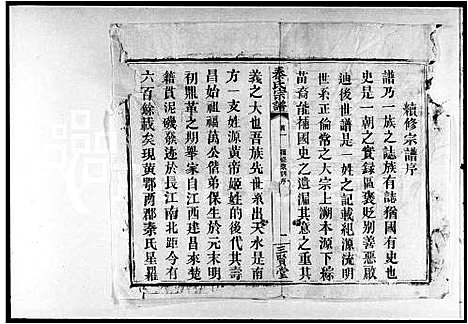 續修宗譜序
譜乃一族之誌族有誌猶國有史也
史是一朝之實錄區褒貶別善惡啟
迪後世譜是一姓之記載紀源流明
世系正倫常之大宗上溯本源下綜
苗裔能補國史之漏其意之重其
義之大也吾族先世系出天水是南
方一支姓源黃帝姬姓的後代其壽
昌始祖福萬公偕弟保生於元末明
初鼎革之時自江西建昌來楚
籍貫泥磯發迹於長江南北距今有
六百餘載矣現黃鄂兩郡秦氏星羅
秦氏宗譜
卷一
三賢堂